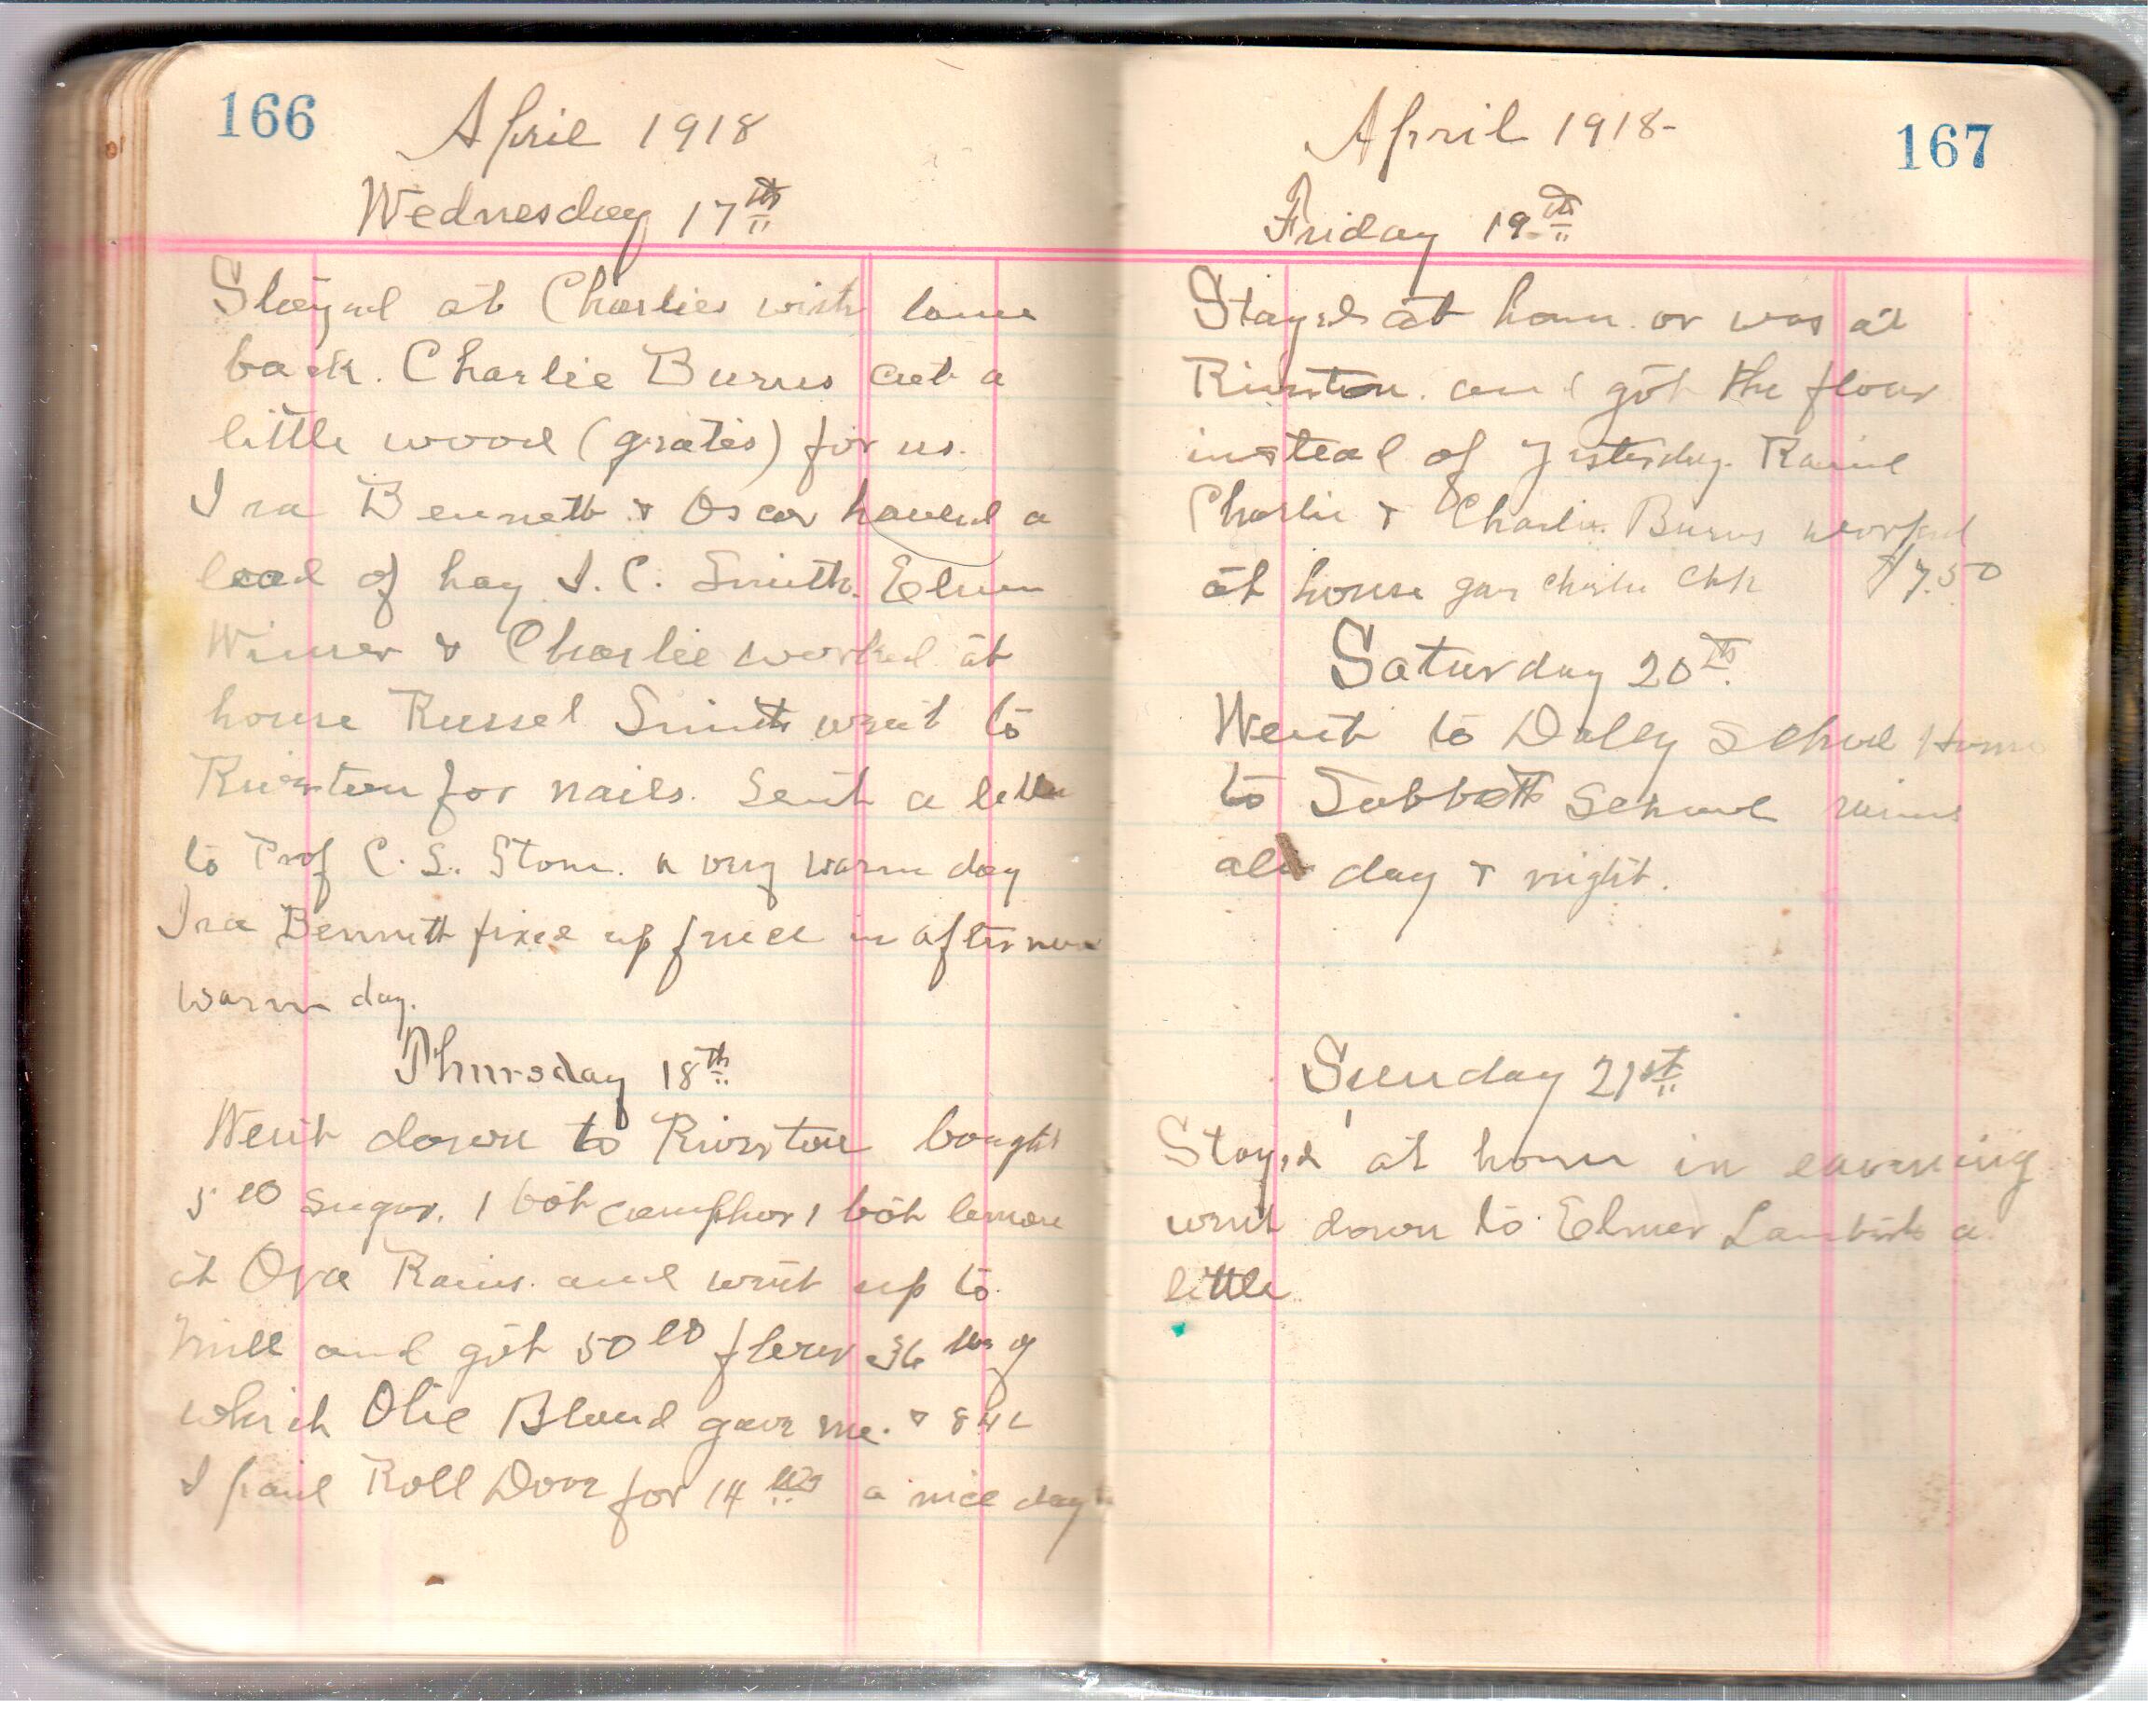 166
April 1918
Wednesday 17th
Stayed at Charlies with lame
back. Charlie Burns cut a
little wood (gratis) for us.
Ira Bennett & Oscar hauled a
load of hay J. C. Smith. Elmer
Winer & Charlie worked at
house Russel Smith went to
Riverton for nails. Sent a letter
to Prof C. S. Stone. a very warm day
Ira Bennett fixed up fence in afternoon
warm day.
Thursday 18th
Went down to Riverton bought
5 lb sugar. 1 bot camphor 1 bot lemon
at Ora Rains. and went up to
mill and got 50 lb flour 36 lbs of
which Olie Bland gave me. & 84c
I paid Roll Dove for 14 lbs a nice day
167
April 1918-
Friday 19th
Stayed at home. or was at
Riverton. and got the flour
instead of yesterday. Rained
Charlie & Charlie Burns worked
at house gave Charlie Chk $7.50
Saturday 20th
Went to Daley School House
to Sabbath School rained
all day & night.
Sunday 21st
Stayed at home in evening
went down to Elmer Lamberts a
little